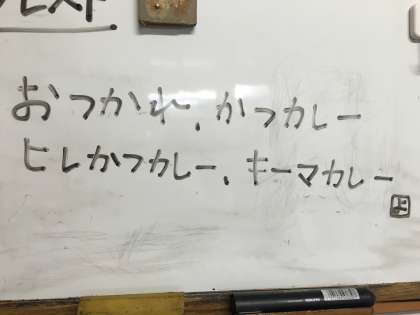 おつかれ、かつカレー
ヒレかつカレー、キーマカレー